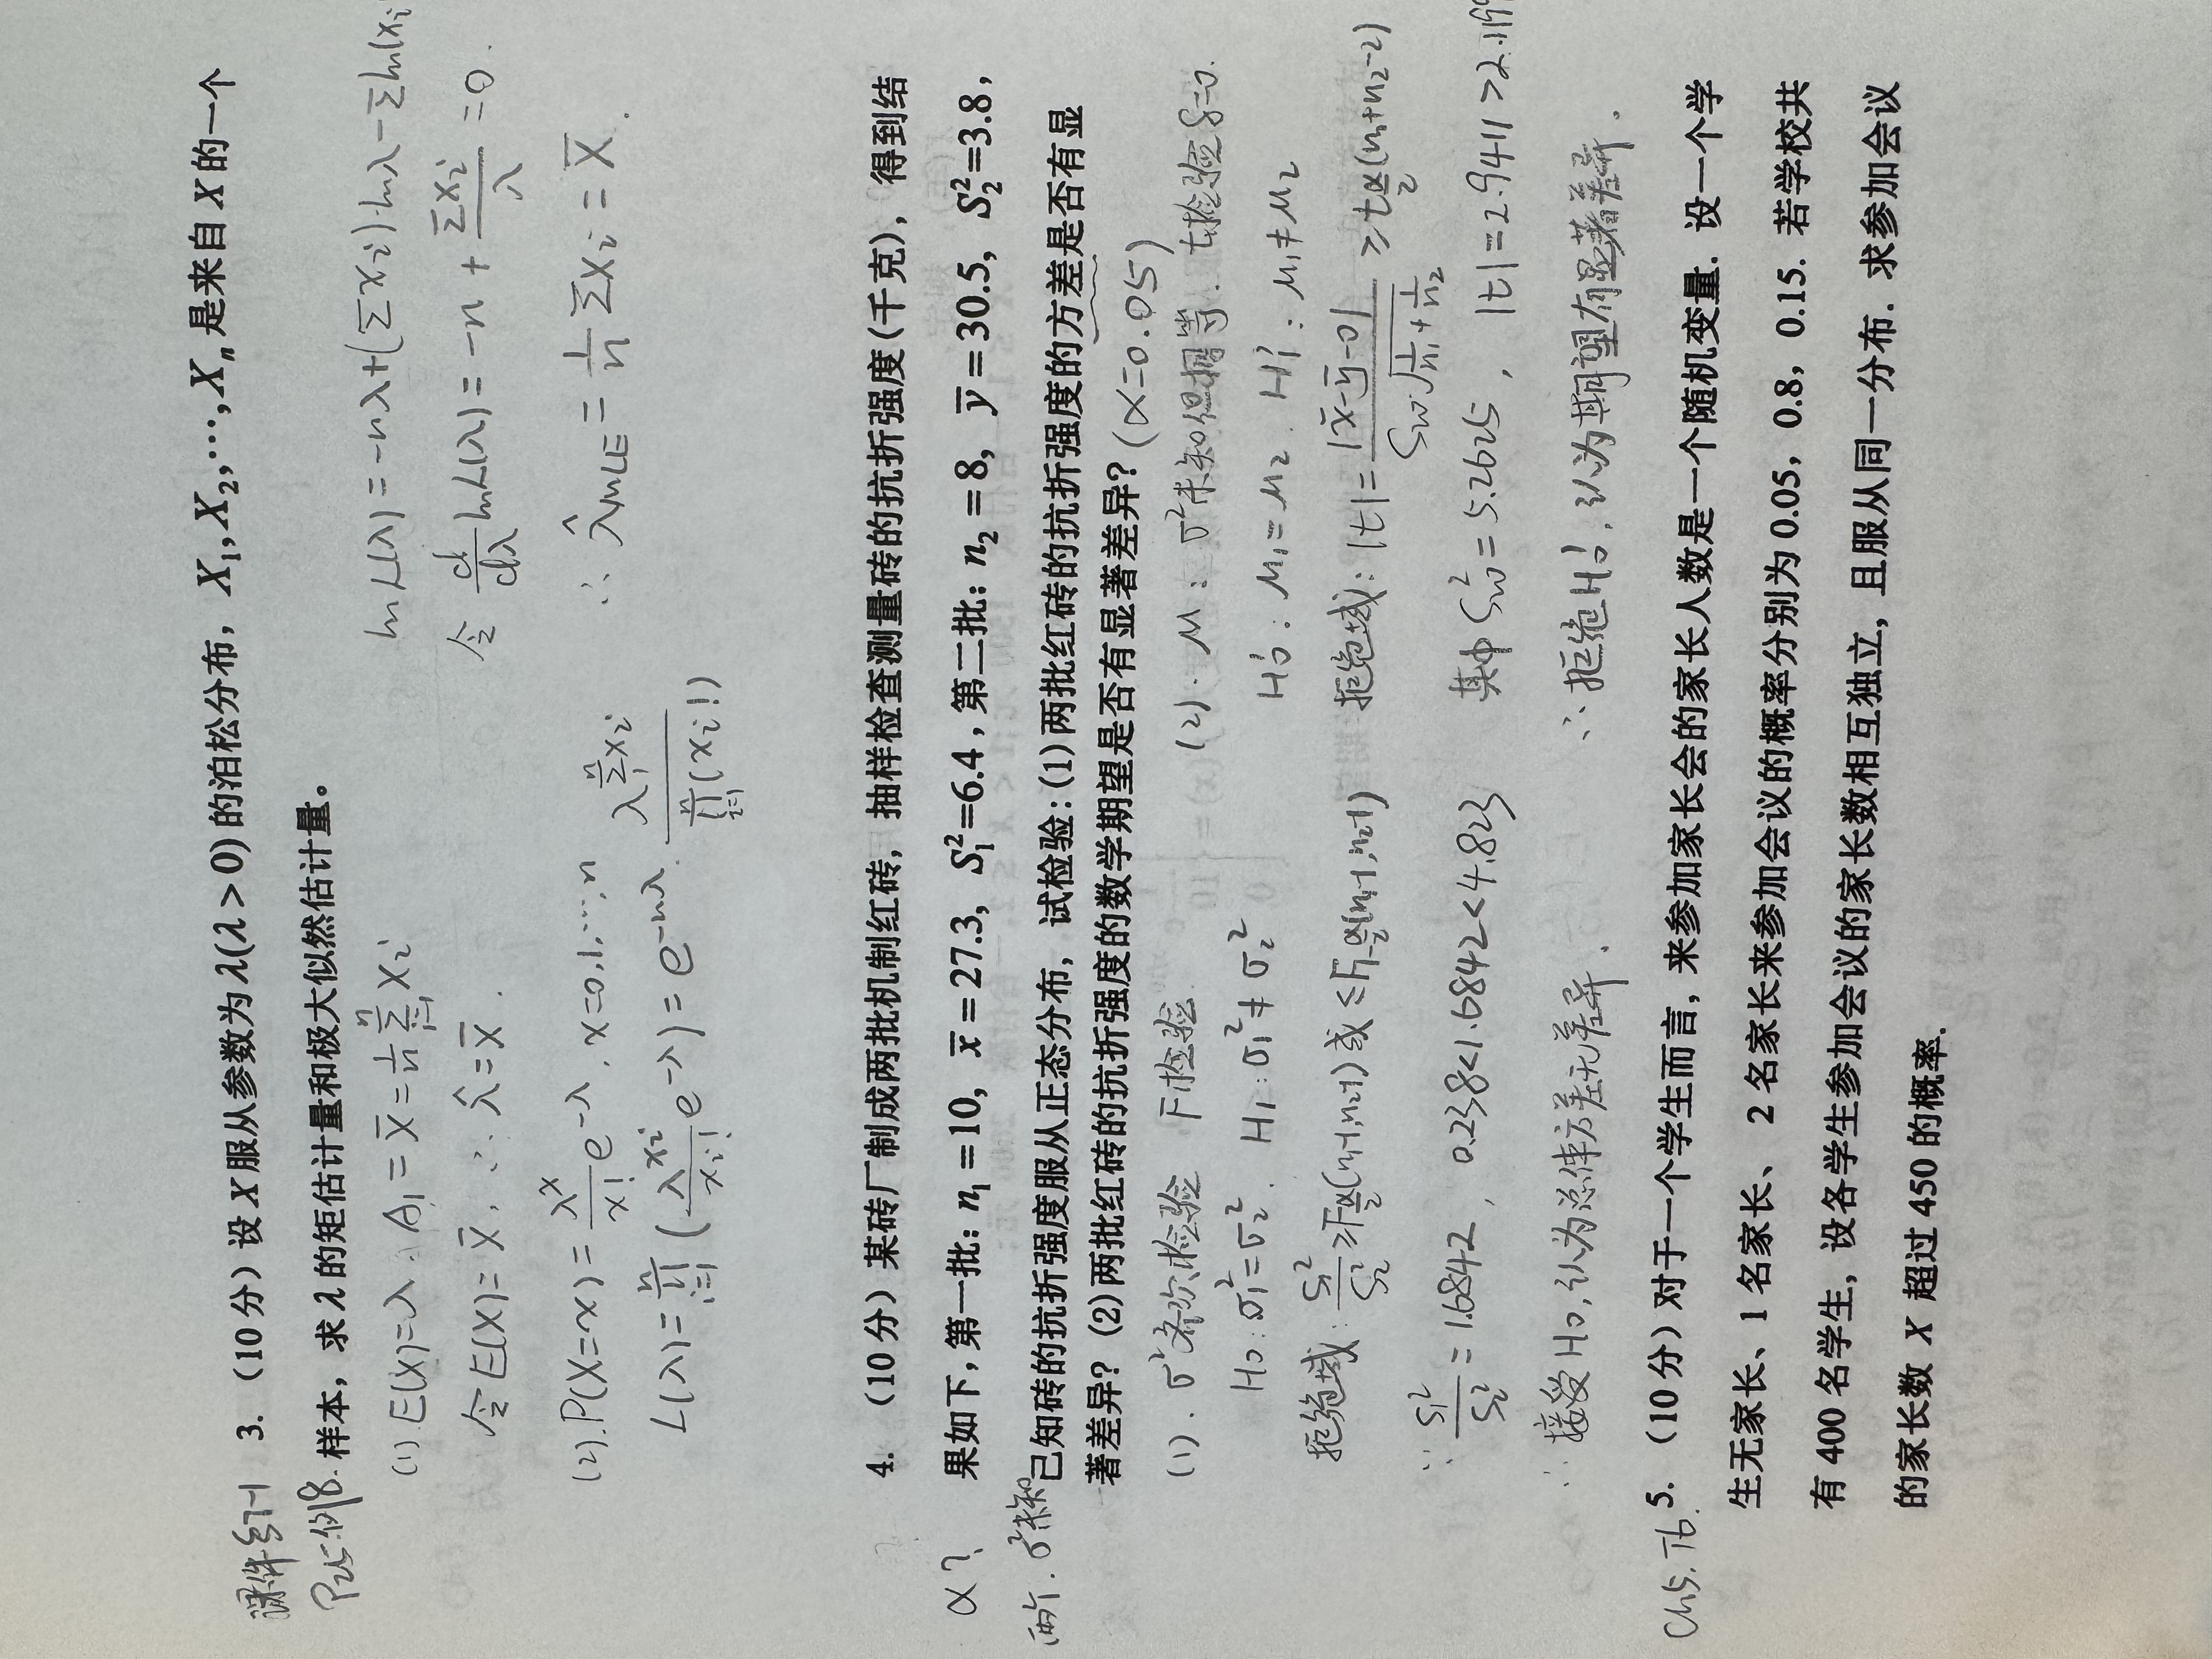 课件§7-1
P25.例8.
3. （10 分）设 X 服从参数为 λ(λ > 0) 的泊松分布，X₁, X₂, ⋯, Xₙ 是来自 X 的一个
样本，求 λ 的矩估计量和极大似然估计量。
(1) E(X)=λ. A₁ = X̄ = 1/n Σᵢ₌₁ⁿ Xᵢ
令 E(X)= X̄, ∴ λ̂ = X̄.
(2). P(X=x) = λˣ/x! e^(-λ), x=0,1,⋯,n
L(λ) = ∏ᵢ₌₁ⁿ (λ^(xᵢ)/xᵢ! e^(-λ)) = e^(-nλ) · λ^(Σ₁ⁿ xᵢ) / ∏ᵢ₌₁ⁿ (xᵢ!)
ln L(λ) = -nλ + (Σxᵢ)·lnλ - Σln(xᵢ
令 d/dλ lnL(λ) = -n + Σxᵢ/λ = 0.
∴ λ̂MLE = 1/n Σxᵢ = X̄.
4. （10 分）某砖厂制成两批机制红砖，抽样检查测量砖的抗折强度(千克)，得到结
α?
果如下,第一批: n₁ = 10, x̄ = 27.3, S₁²=6.4 ,第二批: n₂ = 8, ȳ = 30.5, S₂²=3.8,
两个. σ²未知
已知砖的抗折强度服从正态分布，试检验: (1)两批红砖的抗折强度的方差是否有显
著差异? (2)两批红砖的抗折强度的数学期望是否有显著差异? (α=0.05)
(1). σ²齐次检验 F检验
H₀: σ₁²=σ₂². H₁: σ₁²≠σ₂²
拒绝域: S₁²/S₂² ≥ F_(α/2)(n₁-1,n₂-1) 或 ≤ F_(1-α/2)(n₁-1,n₂-1)
∵ S₁²/S₂² = 1.6842, 0.238<1.6842<4.823
∴ 接受H₀,认为总体方差无差异.
(2). μ: σ²未知但相等. t检验 δ=0.
H₀′: μ₁=μ₂. H₁′: μ₁≠μ₂
拒绝域: |t|= |x̄-ȳ-0| / (Sw·√(1/n₁+1/n₂)) ≥ t_(α/2)(n₁+n₂-2)
其中 Sw²=5.2625, |t|=2.9411>2.1199
∴ 拒绝H₀′,认为期望有显著差异.
Ch5. T6.
5. （10 分）对于一个学生而言，来参加家长会的家长人数是一个随机变量. 设一个学
生无家长、1 名家长、 2 名家长来参加会议的概率分别为 0.05，0.8，0.15. 若学校共
有 400 名学生，设各学生参加会议的家长数相互独立，且服从同一分布. 求参加会议
的家长数 X 超过 450 的概率.